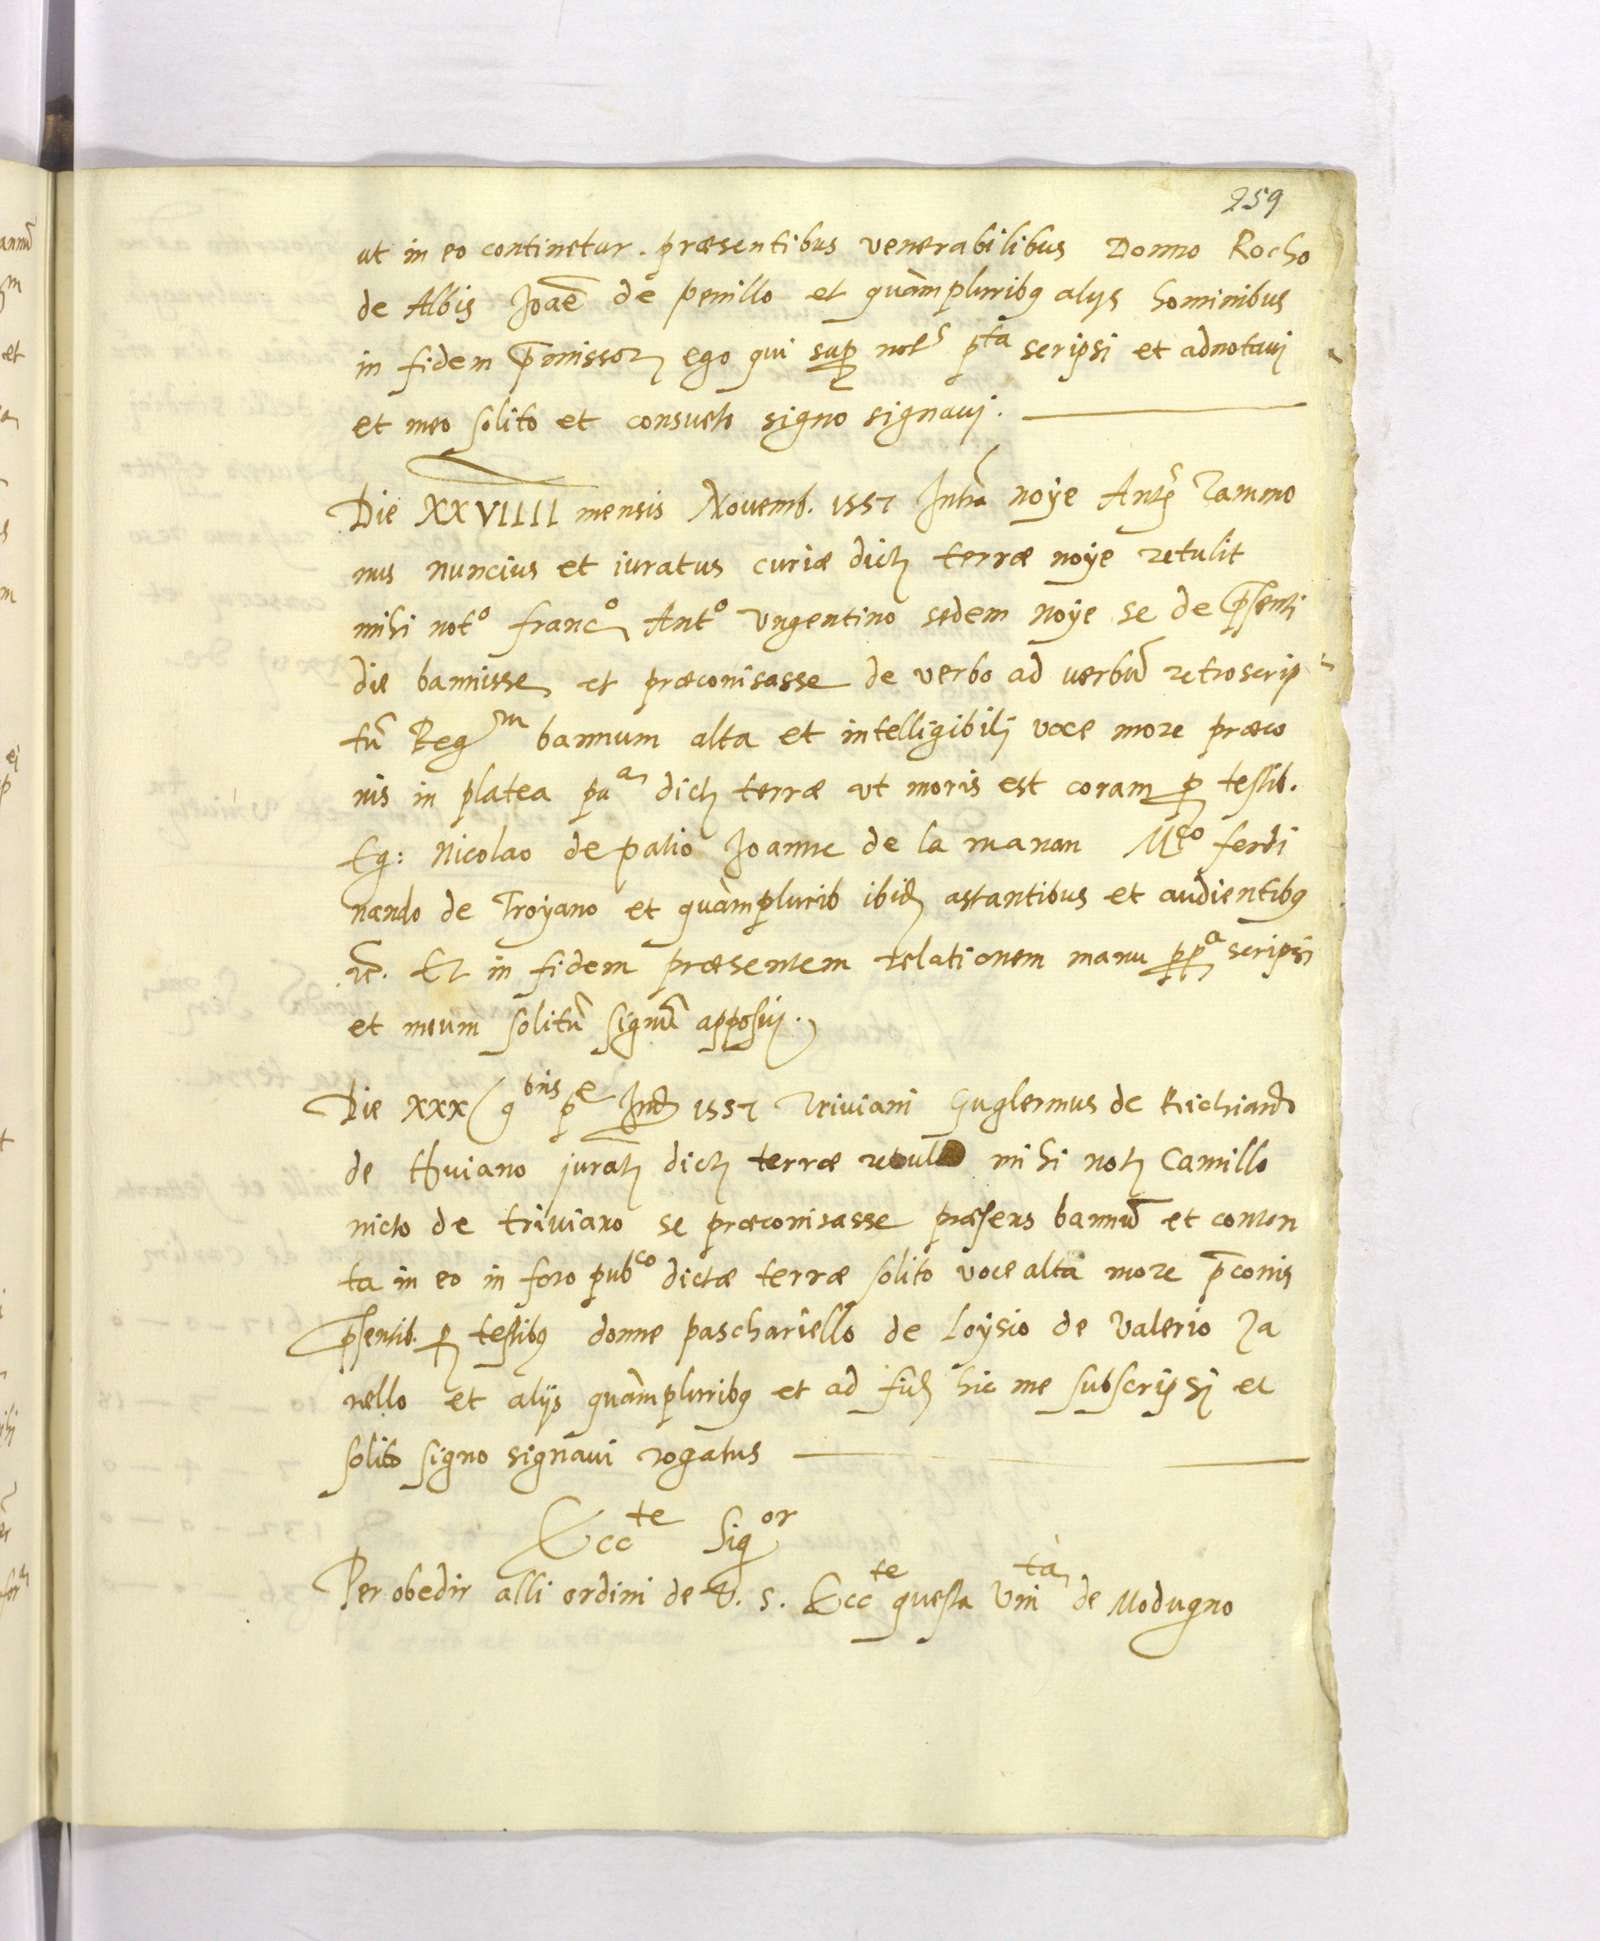 259
ut in eo continetur. præsentibus venerabilibus Donno Rocho
de Albis Joañe de penillo et quàmpluribq alys hominibus
in fidem p̃missoꝝ ego qui supꝛ̃ notꝰ p.ta scripsi et adnotavj
et meo solito et consueto signo signavj.
Die XXVIIII mensis Novemb. 1557 Intra noye Antꝰ Zammo
nus nuncius et iuratus curiæ dictꝫ terræ noye retulit
mihi not.o franc.o Ant.o Ungentino sedem noye se de p̃senti
die bannisse et præconisasse de verbo ad verbũ retroscrip
tũ Reg.m bannum alta et intelligibilj voce more præco
nis in platea pu.a dictꝫ terræ ut moris est coram ꝑ testib.
Eg: Nicolao de patio Joanne de la manan M.co ferdi
nando de Troyano et quàmplurib ibidꝫ astantibus et audientibq
ẽ. Et in fidem præsentem relationem manu ꝓp.a scripsi
et meum solitũ signũ apposuj.
Die XXX 9.bris p.e Ind 1557 Triviani Guglermus de Richiardo
de Triviano juratꝫ dictꝫ terræ retul mihi notꝫ Camillo
nicto de triviano se præconisasse præsens bannũ et conten
ta in eo in foro pub.co dictæ terræ solito voce alta more p̃conis
p̃sentib. ꝑ testibq donne paschariello de Loysio de Valerio Za
nello et alijs quàmpluribq et ad fidꝫ hic me subscripsj et
solito signo signavi rogatus
Ecc.te Sig.or
Per obedir alli ordini de V. S. Ecc.te questa Uni.tà de Modugno